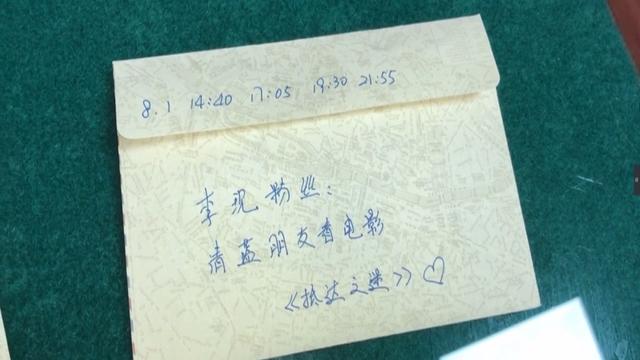 8.1 14:40 17:05 19:30 21:55
李现粉丝:
请蓝朋友看电影
《抵达之迷》♡